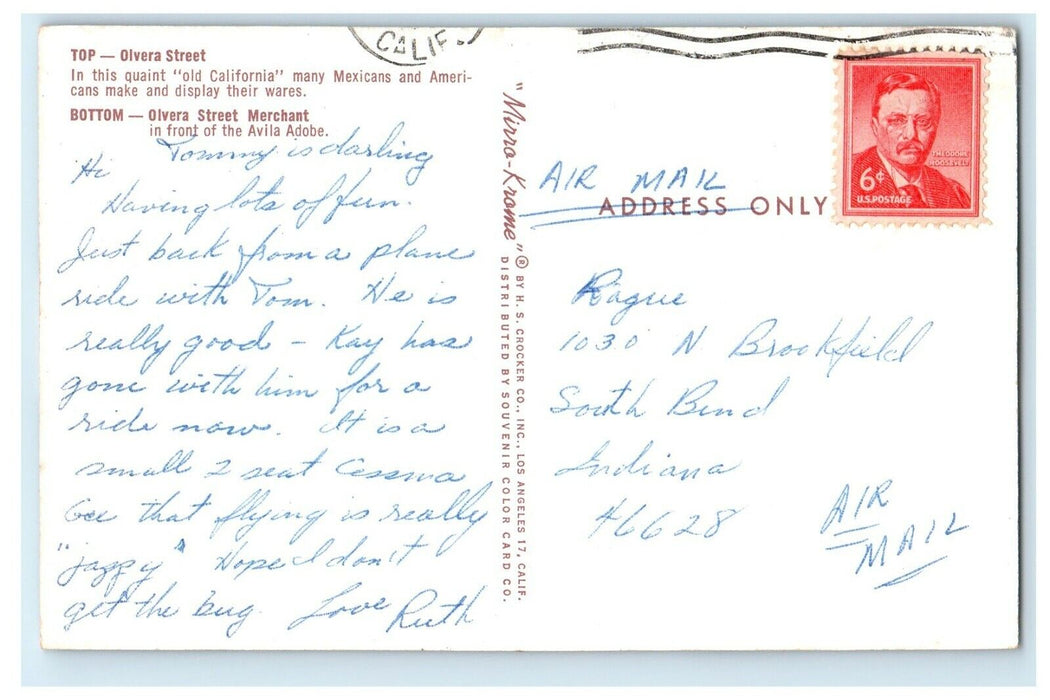 CALIF.
TOP — Olvera Street
In this quaint "old California" many Mexicans and Ameri-
cans make and display their wares.
BOTTOM — Olvera Street Merchant
in front of the Avila Adobe.
Tommy is darling
Hi
Having lots of fun.
Just back from a plane
ride with Tom. He is
really good - Kay has
gone with him for a
ride now. It is a
small 2 seat Cessna
Gee that flying is really
"jazzy" Hope I don't
get the bug. Love Ruth
"Mirro-Krome"® BY H. S. CROCKER CO., INC., LOS ANGELES 17, CALIF.
DISTRIBUTED BY SOUVENIR COLOR CARD CO.
THEODORE
ROOSEVELT
6¢
U.S. POSTAGE
AIR MAIL
ADDRESS ONLY
Rague
1030 N Brookfield
South Bend
Indiana
46628
AIR
MAIL